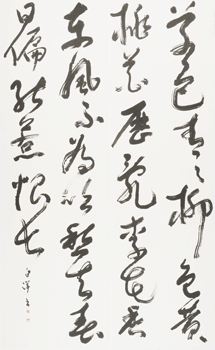 草色青々柳色黄
桃花歴乱李花香
東風不為吹愁去春
日偏能惹恨長